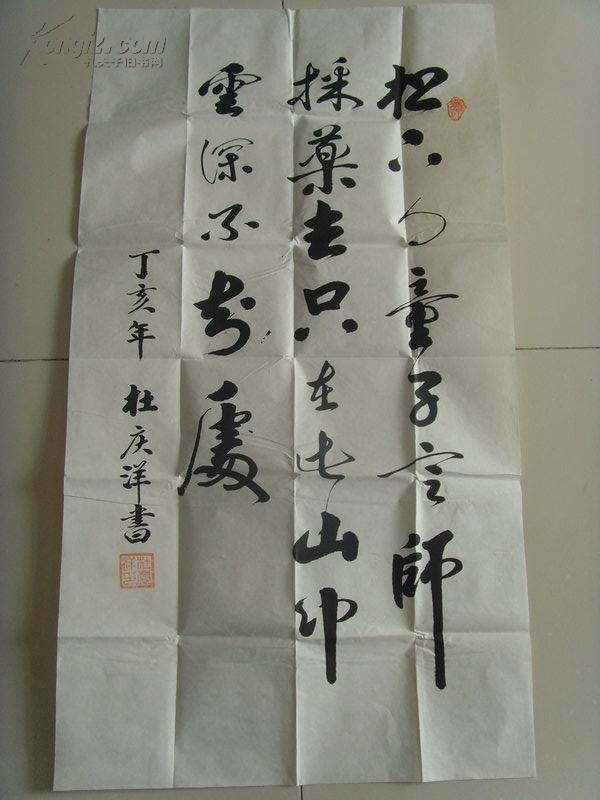 松下问童子言師
採藥去只在此山中
雲深不知處
丁亥年 杜庆洋書
Kongfz.com
孔夫子旧书网